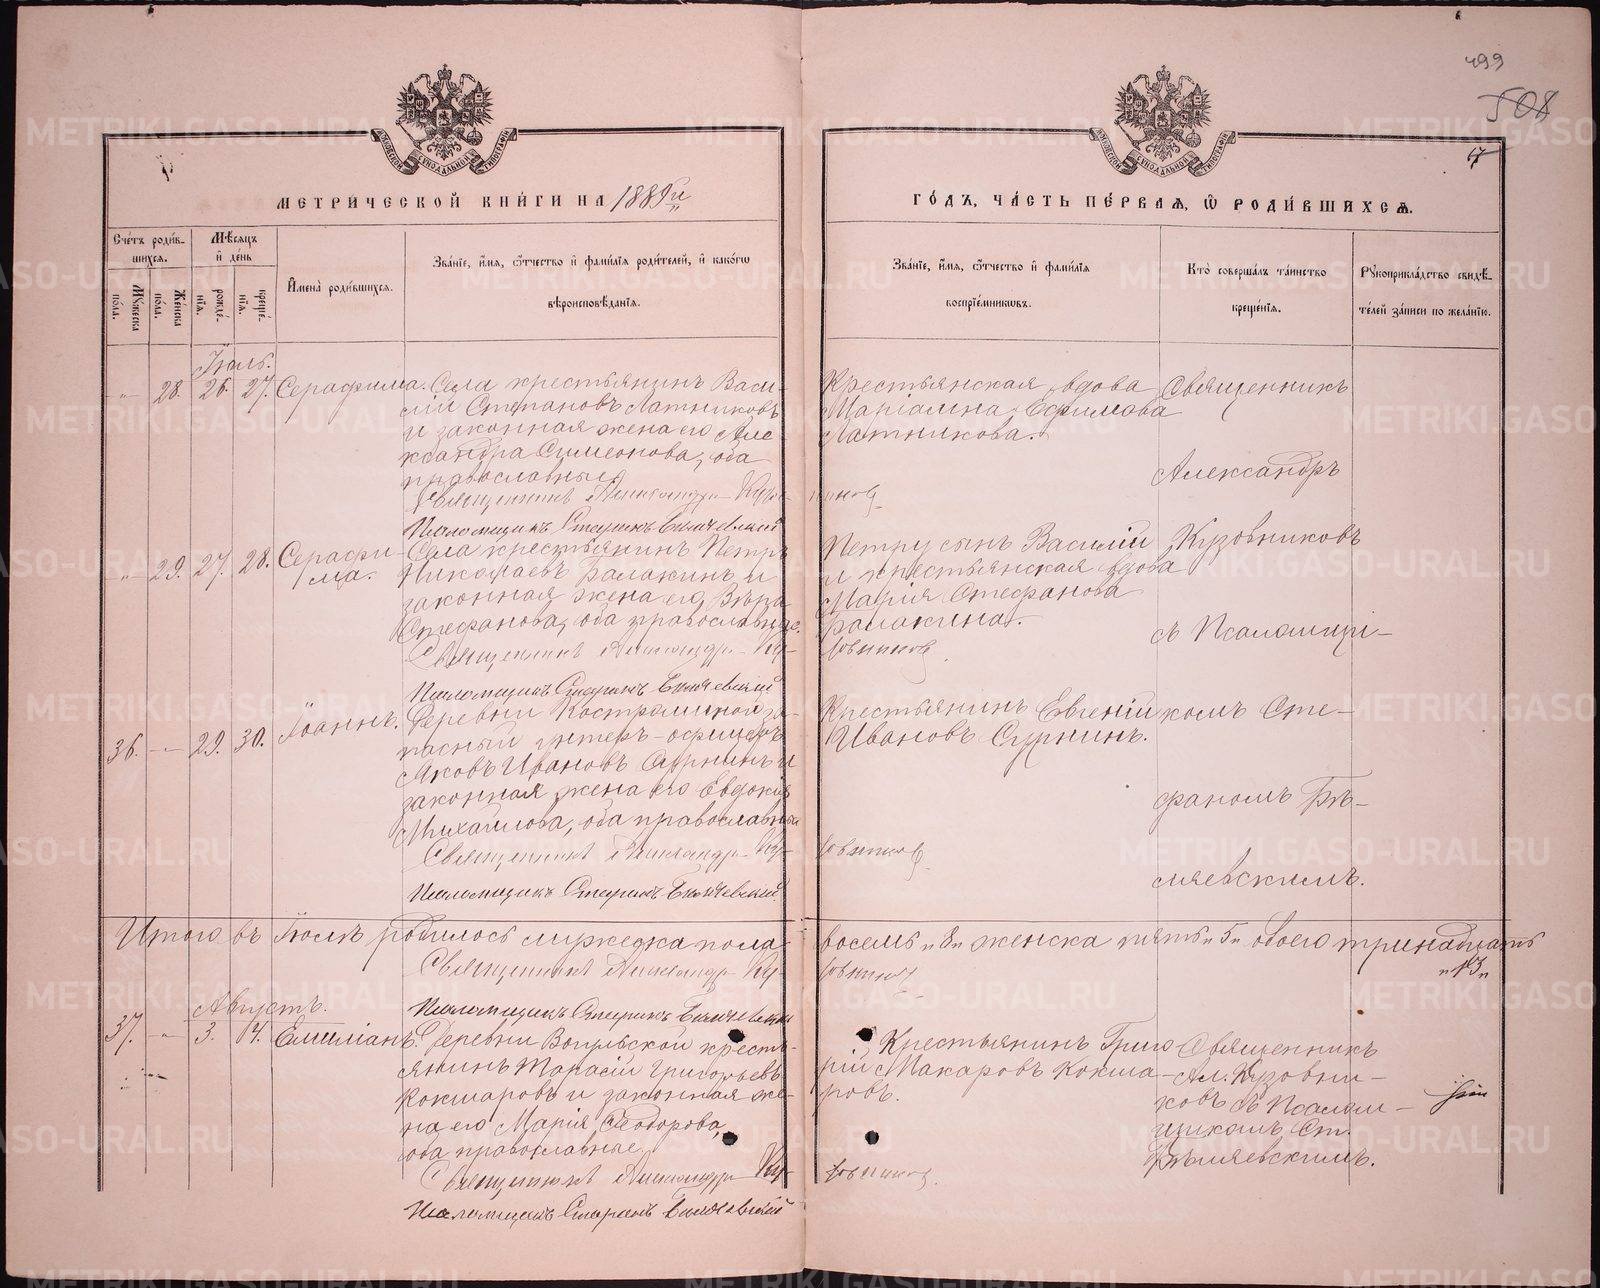 499
508
17
МЕТРИ́ЧЕСКОЙ КНИ́ГИ НА 1889й
ГО́ДЪ, ЧА́СТЬ ПЕ́РВАЯ, Ѽ РОДИ́ВШИХСЯ.
Сче́тъ роди́в-
шихся.
Мѣ́сяцъ
и де́нь
Му́жеска
по́ла.
Же́нска
по́ла.
рожде́-
нїя.
креще́-
нїя.
И҆мена̀ роди́вшихся.
Зва́нїе, и҆́мя, ѻ҆́тчество и҆ фами́лїя роди́телей, и҆ како́гѡ
вѣроисповѣ́данїя.
Зва́нїе, и҆́мя, ѻ҆́тчество и҆ фами́лїя
воспрїе́мникѡвъ.
Кто̀ соверша́лъ та́инство
креще́нїя.
Рꙋкоприкла́дство свидѣ́-
телей за́писи по жела́нїю.
Іюль.
28. 26. 27. Серафима.
Села крестьянинъ Васи-
лій Степановъ Латниковъ
и законная жена его Але-
ксандра Симеонова, оба
православные.
Священникъ Александръ Кузов-
никовъ
Псаломщикъ Стефанъ Бѣляевскій
Крестьянская вдова
Маріамна Ефимова
Латникова.
Священникъ
Александръ
29. 27. 28. Серафи-
ма.
Села крестьянинъ Петръ
Николаевъ Балакинъ и
законная жена его Вѣра
Стефанова, оба православные.
Священникъ Александръ Ку-
зовниковъ
Псаломщикъ Стефанъ Бѣляевскій
Петру сынъ Василій
и крестьянская вдова
Марія Стефанова
Балакина.
Кузовниковъ
съ Псаломщи-
36. 29. 30. Іоаннъ.
Деревни за-
пасный унтеръ-офицеръ
Яковъ Ивановъ Суркинъ и
законная жена его Евдокія
Михайлова, оба православные
Священникъ Александръ Ку-
зовниковъ
Псаломщикъ Стефанъ Бѣляевскій
Крестьянинъ Евгеній
Ивановъ Суркинъ.
комъ Сте-
фаномъ Бѣ-
ляевскимъ.
Итого въ Іюлѣ родилось мужеска пола восемь „8„ женска пять „5„ обоего тринадцать
„13„
Священникъ Александръ Ку-
зовниковъ
Псаломщикъ Стефанъ Бѣляевскій
Августъ.
37. 3. 4. Емиліанъ.
Деревни Вогульской кресть-
янинъ Тарасій Григорьевъ
Кокшаровъ и законная же-
на его Марія Ѳеодорова,
оба православные
Священникъ Александръ Ку-
зовниковъ
Псаломщикъ Стефанъ Бѣляевскій
Крестьянинъ Григо-
рій Макаровъ Кокша-
ровъ.
Священникъ
Ал. Кузовни-
ковъ съ Псалом-
щикомъ Ст.
Бѣляевскимъ.
METRIKI.GASO-URAL.RU